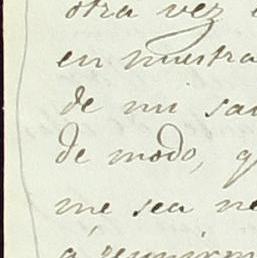 otra vez
en muestra
de mi
de modo,
me sea
á reunirm